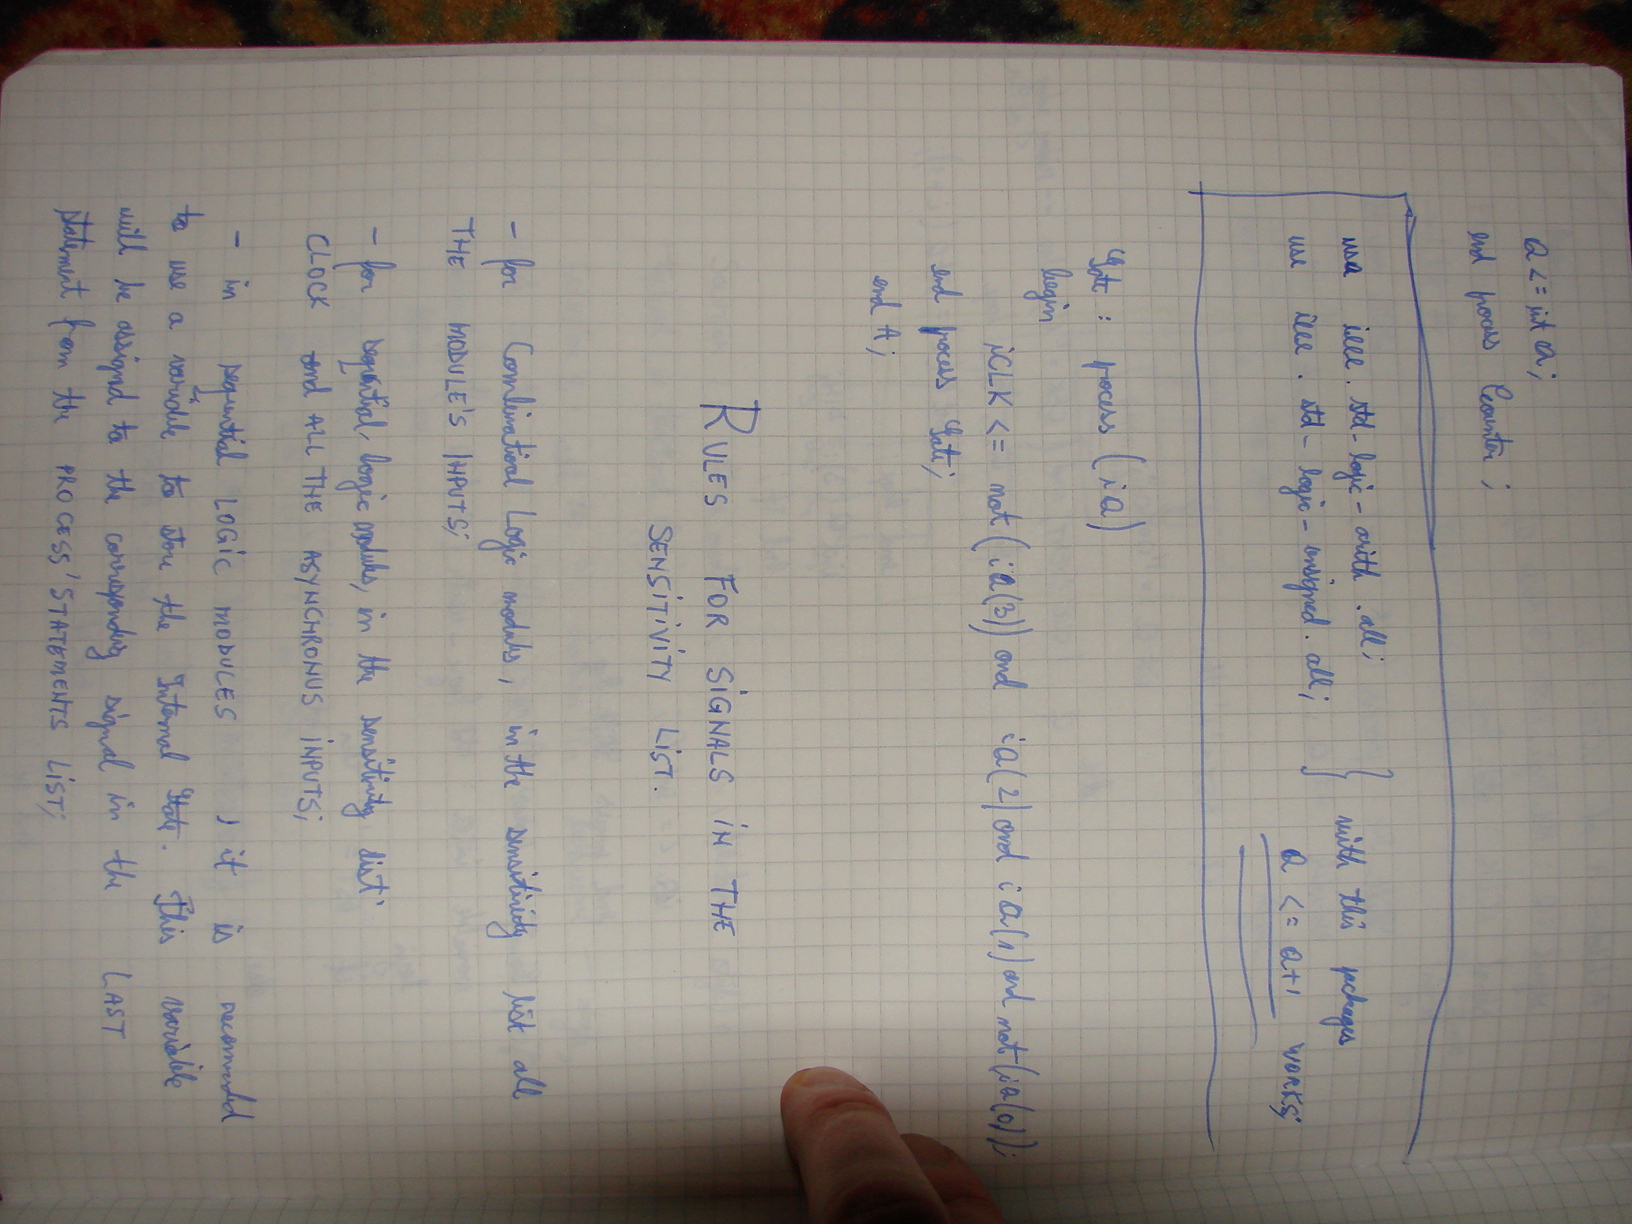 a <= int a;
end process Counter;
use ieee.std-logic-arith.all;
use ieee.std-logic-unsigned.all;
} with this packages
a <= a+1 works;
Gate : process (ia)
begin
iCLK <= not(ia(3)) and ia(2) and ia(1) and not(ia(0));
end process Gate;
end A;
RULES FOR SIGNALS IN THE
SENSITIVITY LIST.
- for Combinational Logic modules, in the sensitivity list all
THE MODULE'S INPUTS;
- for sequential logic modules, in the sensitivity list
CLOCK and ALL THE ASYNCHRONUS INPUTS;
- in sequential LOGIC MODULES, it is recommended
to use a variable to store the Internal State. This variable
will be assigned to the corresponding signal in the LAST
statement from the PROCESS' STATEMENTS LIST;